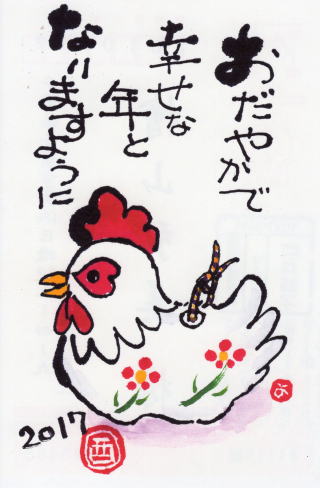 おだやかで
幸せな
年と
なりますように
2017
酉